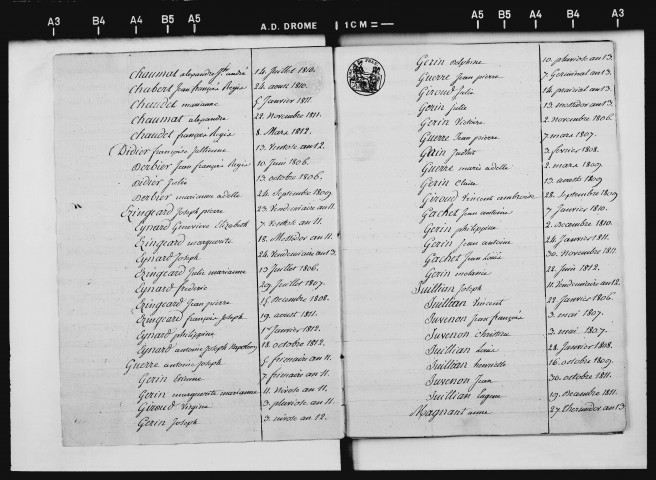 A3 B4 A4 B5 A5 A.D. DROME 1 CM A5 B5 A4 B4 A3
Chaumat alexandre jh andré 14 Juillet 1810.
Chabert Jean françois Regis 24 aoust 1810.
Chaudet marianne 5 Janvier 1811.
Chaumat alexandre 22 Novembre 1811.
Chaudet françois Regis 8 Mars 1812.
Didier françoise Julienne 13 Ventose an 12.
Derbier Jean françois Regis 10 Juin 1806.
Didier Julie 13 octobre 1806.
Derbier marianne adelle 24 Septembre 1809
Ezingeard Joseph pierre 23 Vendemiaire an 11.
Eynard Genevieve Elizabeth 7 Ventose an 11.
Ezingeard marguerite 18 Messidor an 11.
Eynard Joseph 24 Vendemiaire an 13.
Ezingeard Julie marianne 13 Juillet 1806.
Eynard frederic 29 Juillet 1807.
Ezingeard Jean pierre 15 Decembre 1808.
Ezingeard françois Joseph 19 aoust 1811.
Eynard philippine 1er Janvier 1812.
Eynard antoine Joseph Napoleon 18 octobre 1812.
Guerre antoine Joseph 5 frimaire an 11.
Gerin etienne 7 frimaire an 11.
Gerin marguerite marianne 11 Nivose an 11.
Giroud Virginie 3 pluviose an 11.
Gerin Joseph 3 nivose an 12.
Gerin delphine 10 pluviose an 13.
Guerre Jean pierre 7 Germinal an 13.
Giroud Julie 14 prairial an 13.
Gerin Julie 13 messidor an 13.
Gerin Victoire 2 Novembre 1806.
Guerre Jean pierre 7 mars 1807.
Gerin 3 fevrier 1808.
Guerre marie adelle 2 mars 1809.
Gerin Claire 13 aoust 1809
Giroud Vincent ambroise 28 Septembre 1809
Gachet Jean antoine 7 Janvier 1810.
Gerin philippine 2 Decembre 1810.
Gerin Jean antoine 24 Janvier 1811.
Gachet Jean Louis 30 Novembre 1811.
Gerin melanie 22 Juin 1812.
Juillian Joseph 11 Vendemiaire an 12.
Juillian Vincent 22 Janvier 1806.
Juvenon Jean françois 3 mai 1807.
Juvenon 3 mai 1807.
Juillian Louis 28 Janvier 1808.
Juillian henriette 16 octobre 1809.
Juvenon Jean 30 octobre 1811.
Juillian Eugene 19 Decembre 1811.
Magnant anne 27 Thermidor an 13